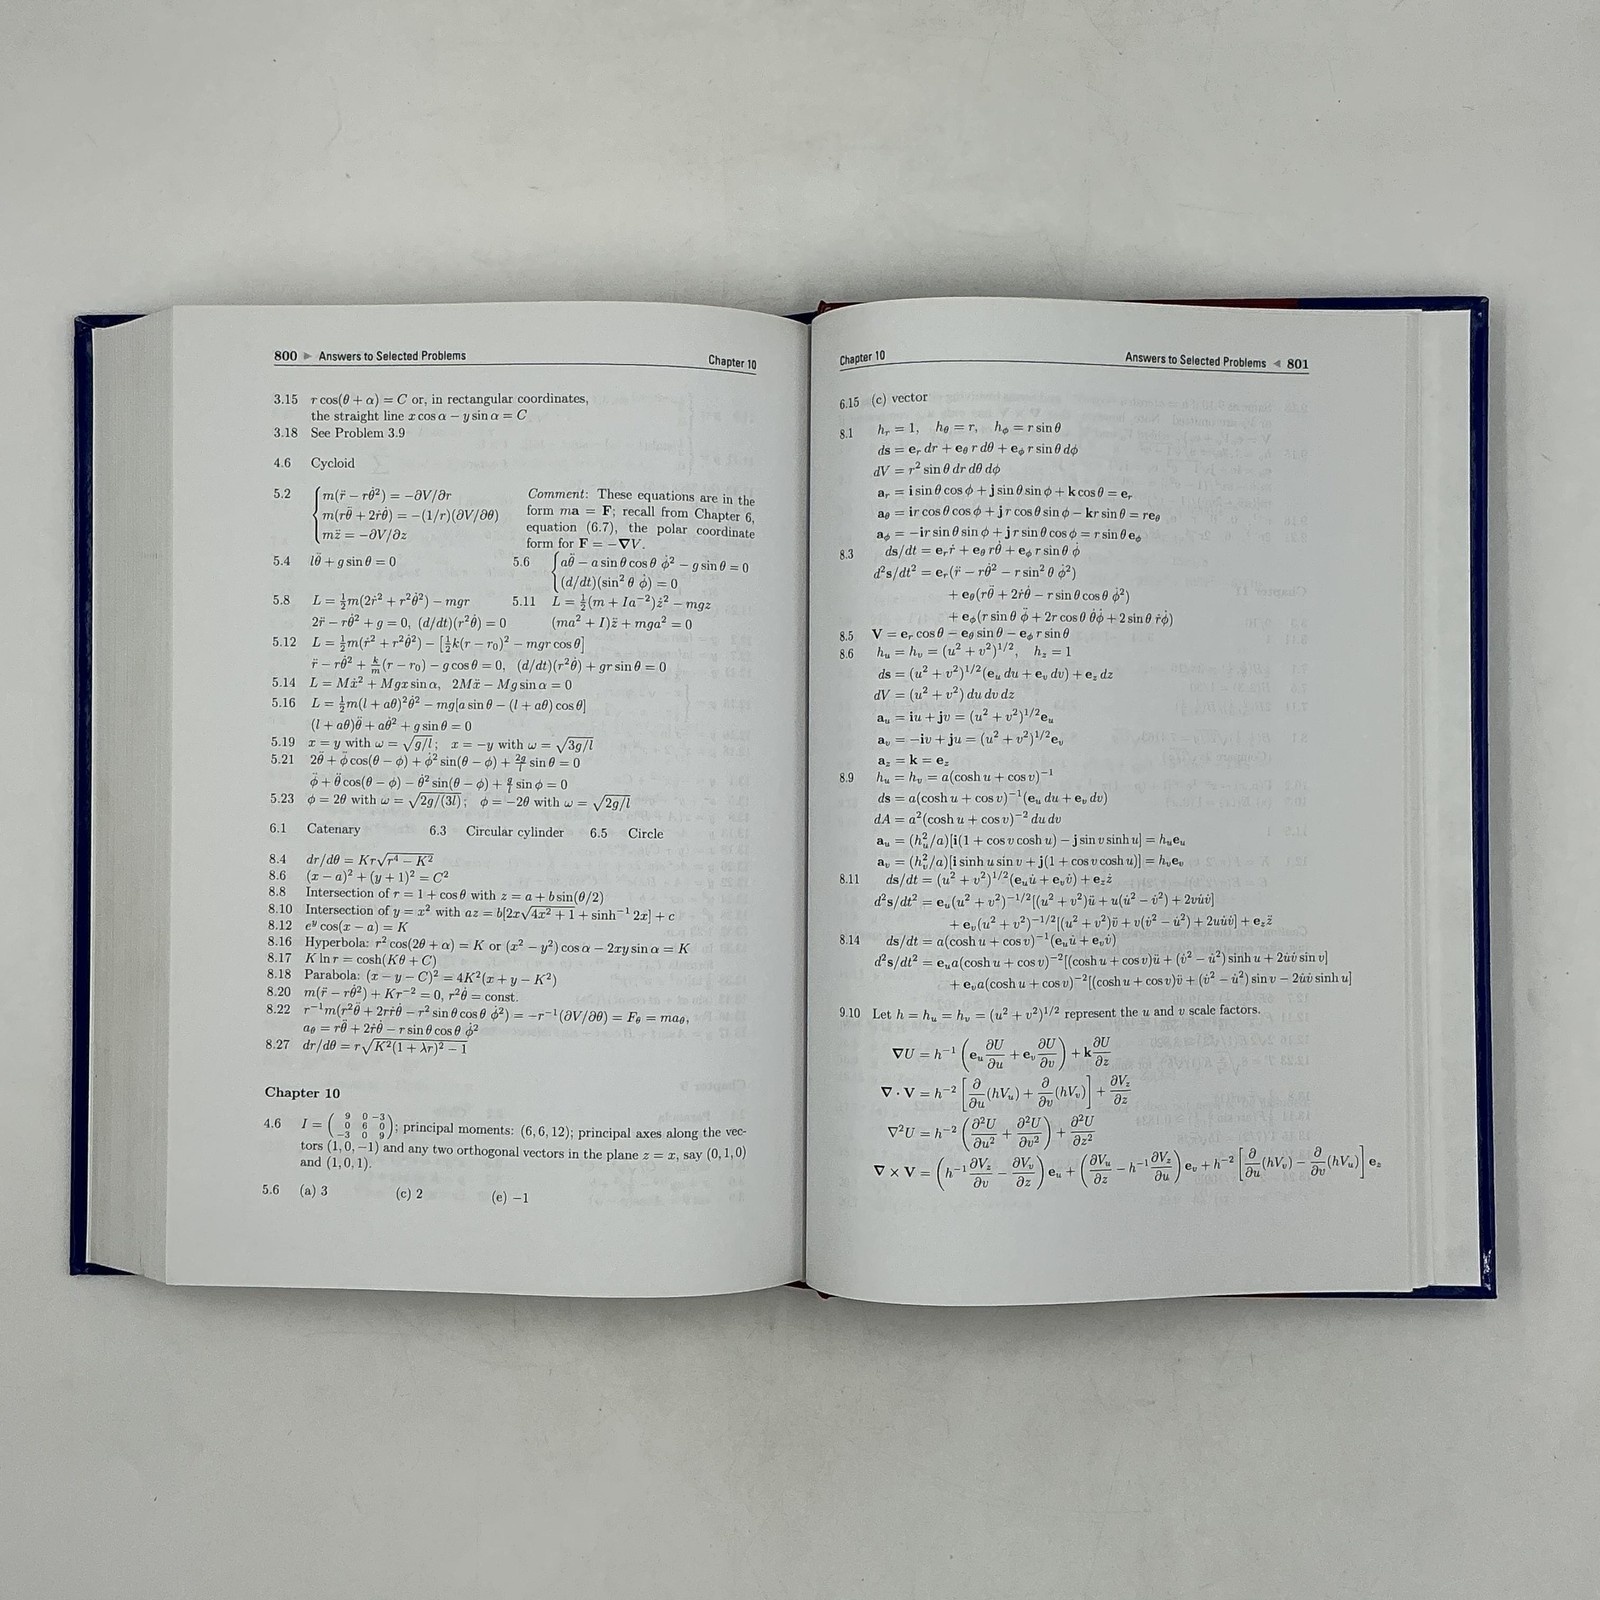 800 ▶ Answers to Selected Problems Chapter 10
3.15 r cos(θ + α) = C or, in rectangular coordinates,
the straight line x cos α − y sin α = C
3.18 See Problem 3.9
4.6 Cycloid
5.2 { m(r̈ − rθ̇²) = −∂V/∂r
m(rθ̈ + 2ṙθ̇) = −(1/r)(∂V/∂θ)
mz̈ = −∂V/∂z
Comment: These equations are in the
form ma = F; recall from Chapter 6,
equation (6.7), the polar coordinate
form for F = −∇V.
5.4 lθ̈ + g sin θ = 0 5.6 { aθ̈ − a sin θ cos θ φ̇² − g sin θ = 0
(d/dt)(sin² θ φ̇) = 0
5.8 L = ½m(2ṙ² + r²θ̇²) − mgr 5.11 L = ½(m + Ia⁻²)ż² − mgz
2r̈ − rθ̇² + g = 0, (d/dt)(r²θ̇) = 0 (ma² + I)z̈ + mga² = 0
5.12 L = ½m(ṙ² + r²θ̇²) − [½k(r − r₀)² − mgr cos θ]
r̈ − rθ̇² + k/m (r − r₀) − g cos θ = 0, (d/dt)(r²θ̇) + gr sin θ = 0
5.14 L = Mẋ² + Mgx sin α, 2Mẍ − Mg sin α = 0
5.16 L = ½m(l + aθ)²θ̇² − mg[a sin θ − (l + aθ) cos θ]
(l + aθ)θ̈ + aθ̇² + g sin θ = 0
5.19 x = y with ω = √(g/l); x = −y with ω = √(3g/l)
5.21 2θ̈ + φ̈ cos(θ − φ) + φ̇² sin(θ − φ) + 2g/l sin θ = 0
φ̈ + θ̈ cos(θ − φ) − θ̇² sin(θ − φ) + g/l sin φ = 0
5.23 φ = 2θ with ω = √(2g/(3l)); φ = −2θ with ω = √(2g/l)
6.1 Catenary 6.3 Circular cylinder 6.5 Circle
8.4 dr/dθ = Kr√(r⁴ − K²)
8.6 (x − a)² + (y + 1)² = C²
8.8 Intersection of r = 1 + cos θ with z = a + b sin(θ/2)
8.10 Intersection of y = x² with az = b[2x√(4x² + 1) + sinh⁻¹ 2x] + c
8.12 eʸ cos(x − a) = K
8.16 Hyperbola: r² cos(2θ + α) = K or (x² − y²) cos α − 2xy sin α = K
8.17 K ln r = cosh(Kθ + C)
8.18 Parabola: (x − y − C)² = 4K²(x + y − K²)
8.20 m(r̈ − rθ̇²) + Kr⁻² = 0, r²θ̇ = const.
8.22 r⁻¹m(r²θ̈ + 2rṙθ̇ − r² sin θ cos θ φ̇²) = −r⁻¹(∂V/∂θ) = F_θ = ma_θ,
a_θ = rθ̈ + 2ṙθ̇ − r sin θ cos θ φ̇²
8.27 dr/dθ = r√(K²(1 + λr)² − 1)
Chapter 10
4.6 I = ( 9 0 −3 / 0 6 0 / −3 0 9 ); principal moments: (6, 6, 12); principal axes along the vec-
tors (1, 0, −1) and any two orthogonal vectors in the plane z = x, say (0, 1, 0)
and (1, 0, 1).
5.6 (a) 3 (c) 2 (e) −1
Chapter 10 Answers to Selected Problems ◀ 801
6.15 (c) vector
8.1 h_r = 1, h_θ = r, h_φ = r sin θ
ds = e_r dr + e_θ r dθ + e_φ r sin θ dφ
dV = r² sin θ dr dθ dφ
a_r = i sin θ cos φ + j sin θ sin φ + k cos θ = e_r
a_θ = ir cos θ cos φ + jr cos θ sin φ − kr sin θ = re_θ
a_φ = −ir sin θ sin φ + jr sin θ cos φ = r sin θ e_φ
8.3 ds/dt = e_r ṙ + e_θ rθ̇ + e_φ r sin θ φ̇
d²s/dt² = e_r(r̈ − rθ̇² − r sin² θ φ̇²)
+ e_θ(rθ̈ + 2ṙθ̇ − r sin θ cos θ φ̇²)
+ e_φ(r sin θ φ̈ + 2r cos θ θ̇φ̇ + 2 sin θ ṙφ̇)
8.5 V = e_r cos θ − e_θ sin θ − e_φ r sin θ
8.6 h_u = h_v = (u² + v²)^1/2, h_z = 1
ds = (u² + v²)^1/2(e_u du + e_v dv) + e_z dz
dV = (u² + v²) du dv dz
a_u = iu + jv = (u² + v²)^1/2 e_u
a_v = −iv + ju = (u² + v²)^1/2 e_v
a_z = k = e_z
8.9 h_u = h_v = a(cosh u + cos v)⁻¹
ds = a(cosh u + cos v)⁻¹(e_u du + e_v dv)
dA = a²(cosh u + cos v)⁻² du dv
a_u = (h_u²/a)[i(1 + cos v cosh u) − j sin v sinh u] = h_u e_u
a_v = (h_v²/a)[i sinh u sin v + j(1 + cos v cosh u)] = h_v e_v
8.11 ds/dt = (u² + v²)^1/2(e_u u̇ + e_v v̇) + e_z ż
d²s/dt² = e_u(u² + v²)^−1/2[(u² + v²)ü + u(u̇² − v̇²) + 2vu̇v̇]
+ e_v(u² + v²)^−1/2[(u² + v²)v̈ + v(v̇² − u̇²) + 2uu̇v̇] + e_z z̈
8.14 ds/dt = a(cosh u + cos v)⁻¹(e_u u̇ + e_v v̇)
d²s/dt² = e_u a(cosh u + cos v)⁻²[(cosh u + cos v)ü + (v̇² − u̇²) sinh u + 2u̇v̇ sin v]
+ e_v a(cosh u + cos v)⁻²[(cosh u + cos v)v̈ + (v̇² − u̇²) sin v − 2u̇v̇ sinh u]
9.10 Let h = h_u = h_v = (u² + v²)^1/2 represent the u and v scale factors.
∇U = h⁻¹ (e_u ∂U/∂u + e_v ∂U/∂v) + k ∂U/∂z
∇ · V = h⁻² [∂/∂u (hV_u) + ∂/∂v (hV_v)] + ∂V_z/∂z
∇²U = h⁻² (∂²U/∂u² + ∂²U/∂v²) + ∂²U/∂z²
∇ × V = (h⁻¹ ∂V_z/∂v − ∂V_v/∂z) e_u + (∂V_u/∂z − h⁻¹ ∂V_z/∂u) e_v + h⁻² [∂/∂u (hV_v) − ∂/∂v (hV_u)] e_z